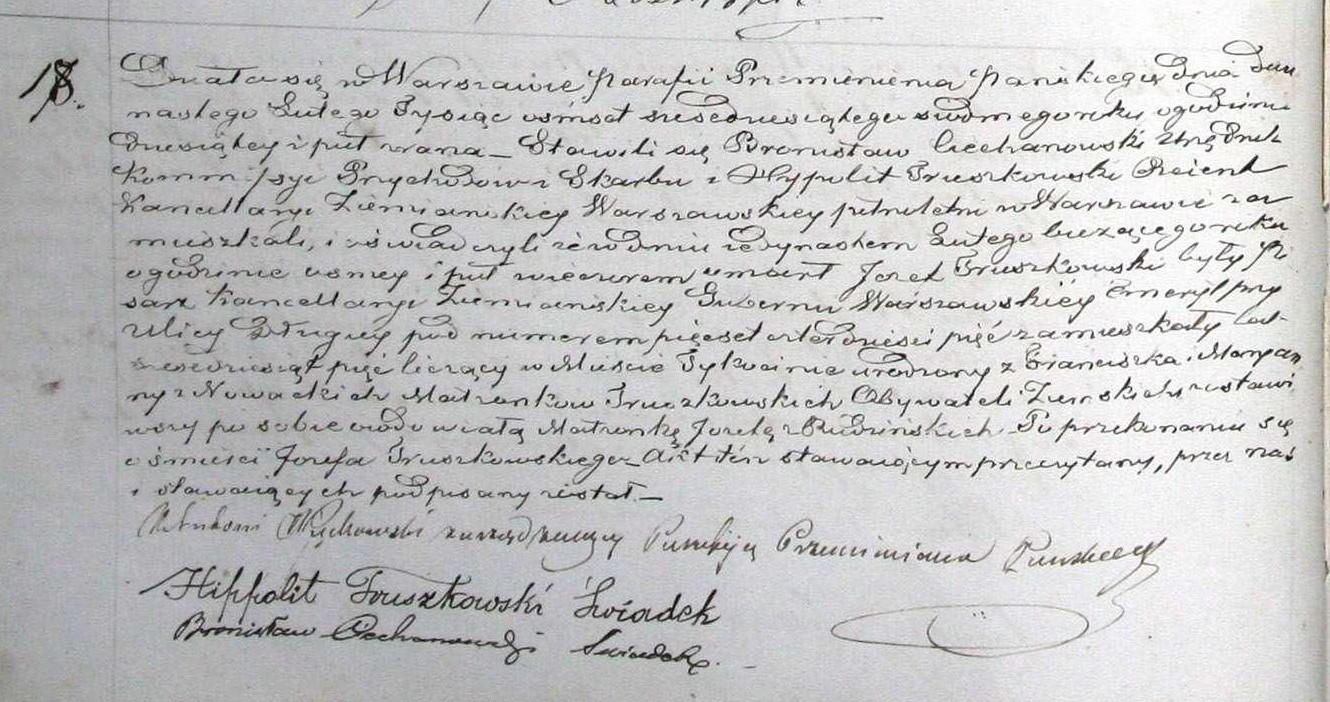 18.
Działo się w Warszawie Parafii Przemienienia Pańskiego dnia dwu
nastego Lutego Tysiąc ośmset sześćdziesiątego siódmego roku o godzinie
dziesiątey i puł z rana — Stawili się Bronisław Ciechanowski Urzędnik
Kommissyi Przychodow i Skarbu i Hypolit Truszkowski Reient
Kancellaryi Ziemiańskiey Warszawskiey pełnoletni w Warszawie za
mieszkali, i oświadczyli że w dniu iedynastem Lutego bieżącego roku
o godzinie osmey i puł wieczorem umarł Jozef Truszkowski były Pi
sarz Kancellaryi Ziemiańskiey Gubernii Warszawskiéy Emeryt przy
Ulicy Długiey pod numerem pięćset czterdzieści pięć zamieszkały lat
sześćdziesiąt pięć liczący w Mieście Tykocinie urodzony z Franciszka i Maryan
ny z Nowackich Małżonkow Truszkowskich Obywateli Ziemskich zostawi
wszy po sobie owdowiałą Małżonkę Jozefę z Rudzińskich. Po przekonaniu się
o śmierci Jozefa Truszkowskiego Akt ten stawaiącym przeczytany, przez nas
i stawaiących podpisany został —
zarządzający Parafiją Przemienienia Pańskiego
Hippolit Truszkowski Świadek
Bronisław Ciechanowski Świadek